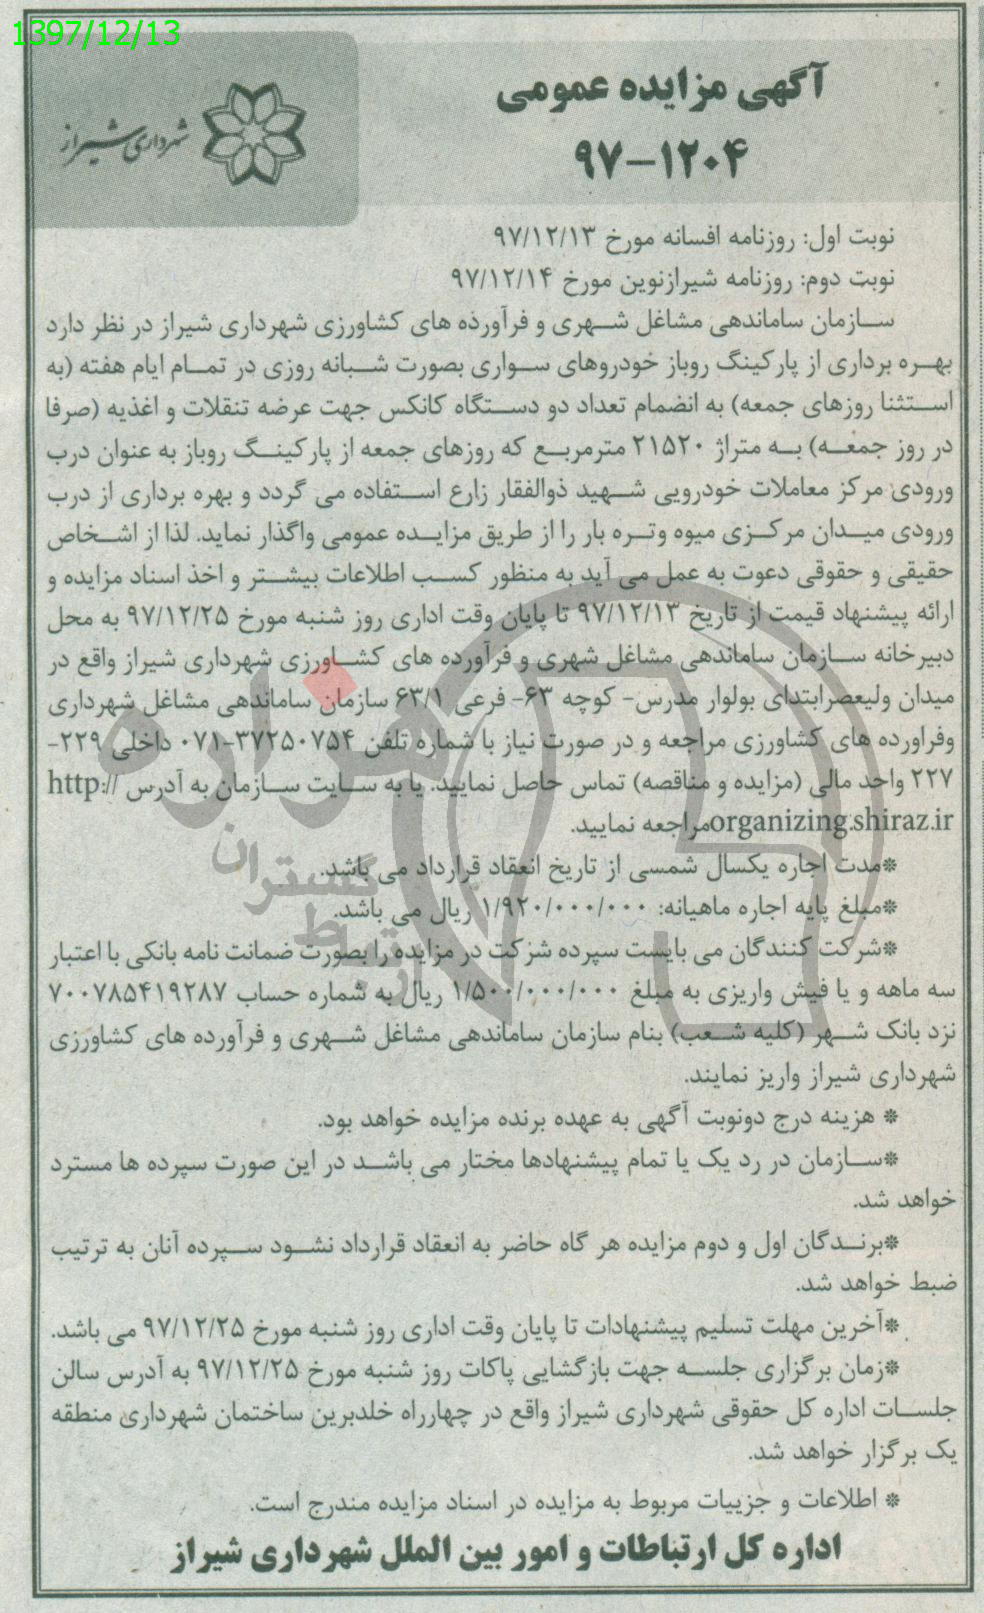 1397/12/13
آگهی مزایده عمومی
۹۷-۱۲۰۴
شهرداری شیراز
نوبت اول: روزنامه افسانه مورخ ۹۷/۱۲/۱۳
نوبت دوم: روزنامه شیرازنوین مورخ ۹۷/۱۲/۱۴
سازمان ساماندهی مشاغل شهری و فرآورده های کشاورزی شهرداری شیراز در نظر دارد
بهره برداری از پارکینگ روباز خودروهای سواری بصورت شبانه روزی در تمام ایام هفته (به
استثنا روزهای جمعه) به انضمام تعداد دو دستگاه کانکس جهت عرضه تنقلات و اغذیه (صرفا
در روز جمعه) به متراژ ۲۱۵۲۰ مترمربع که روزهای جمعه از پارکینگ روباز به عنوان درب
ورودی مرکز معاملات خودرویی شهید ذوالفقار زارع استفاده می گردد و بهره برداری از درب
ورودی میدان مرکزی میوه وتره بار را از طریق مزایده عمومی واگذار نماید. لذا از اشخاص
حقیقی و حقوقی دعوت به عمل می آید به منظور کسب اطلاعات بیشتر و اخذ اسناد مزایده و
ارائه پیشنهاد قیمت از تاریخ ۹۷/۱۲/۱۳ تا پایان وقت اداری روز شنبه مورخ ۹۷/۱۲/۲۵ به محل
دبیرخانه سازمان ساماندهی مشاغل شهری و فرآورده های کشاورزی شهرداری شیراز واقع در
میدان ولیعصرابتدای بولوار مدرس- کوچه ۶۳- فرعی ۶۳/۱ سازمان ساماندهی مشاغل شهرداری
وفراورده های کشاورزی مراجعه و در صورت نیاز با شماره تلفن ۳۷۲۵۰۷۵۴-۰۷۱ داخلی ۲۲۹-
۲۲۷ واحد مالی (مزایده و مناقصه) تماس حاصل نمایید. یا به سایت سازمان به آدرس http://
organizing.shiraz.irمراجعه نمایید.
*مدت اجاره یکسال شمسی از تاریخ انعقاد قرارداد می باشد.
*مبلغ پایه اجاره ماهیانه: ۱/۹۲۰/۰۰۰/۰۰۰ ریال می باشد.
*شرکت کنندگان می بایست سپرده شرکت در مزایده را بصورت ضمانت نامه بانکی با اعتبار
سه ماهه و یا فیش واریزی به مبلغ ۱/۵۰۰/۰۰۰/۰۰۰ ریال به شماره حساب ۷۰۰۷۸۵۴۱۹۲۸۷
نزد بانک شهر (کلیه شعب) بنام سازمان ساماندهی مشاغل شهری و فرآورده های کشاورزی
شهرداری شیراز واریز نمایند.
* هزینه درج دونوبت آگهی به عهده برنده مزایده خواهد بود.
*سازمان در رد یک یا تمام پیشنهادها مختار می باشد در این صورت سپرده ها مسترد
خواهد شد.
*برندگان اول و دوم مزایده هر گاه حاضر به انعقاد قرارداد نشود سپرده آنان به ترتیب
ضبط خواهد شد.
*آخرین مهلت تسلیم پیشنهادات تا پایان وقت اداری روز شنبه مورخ ۹۷/۱۲/۲۵ می باشد.
*زمان برگزاری جلسه جهت بازگشایی پاکات روز شنبه مورخ ۹۷/۱۲/۲۵ به آدرس سالن
جلسات اداره کل حقوقی شهرداری شیراز واقع در چهارراه خلدبرین ساختمان شهرداری منطقه
یک برگزار خواهد شد.
* اطلاعات و جزییات مربوط به مزایده در اسناد مزایده مندرج است.
اداره کل ارتباطات و امور بین الملل شهرداری شیراز
هزاره
گستران